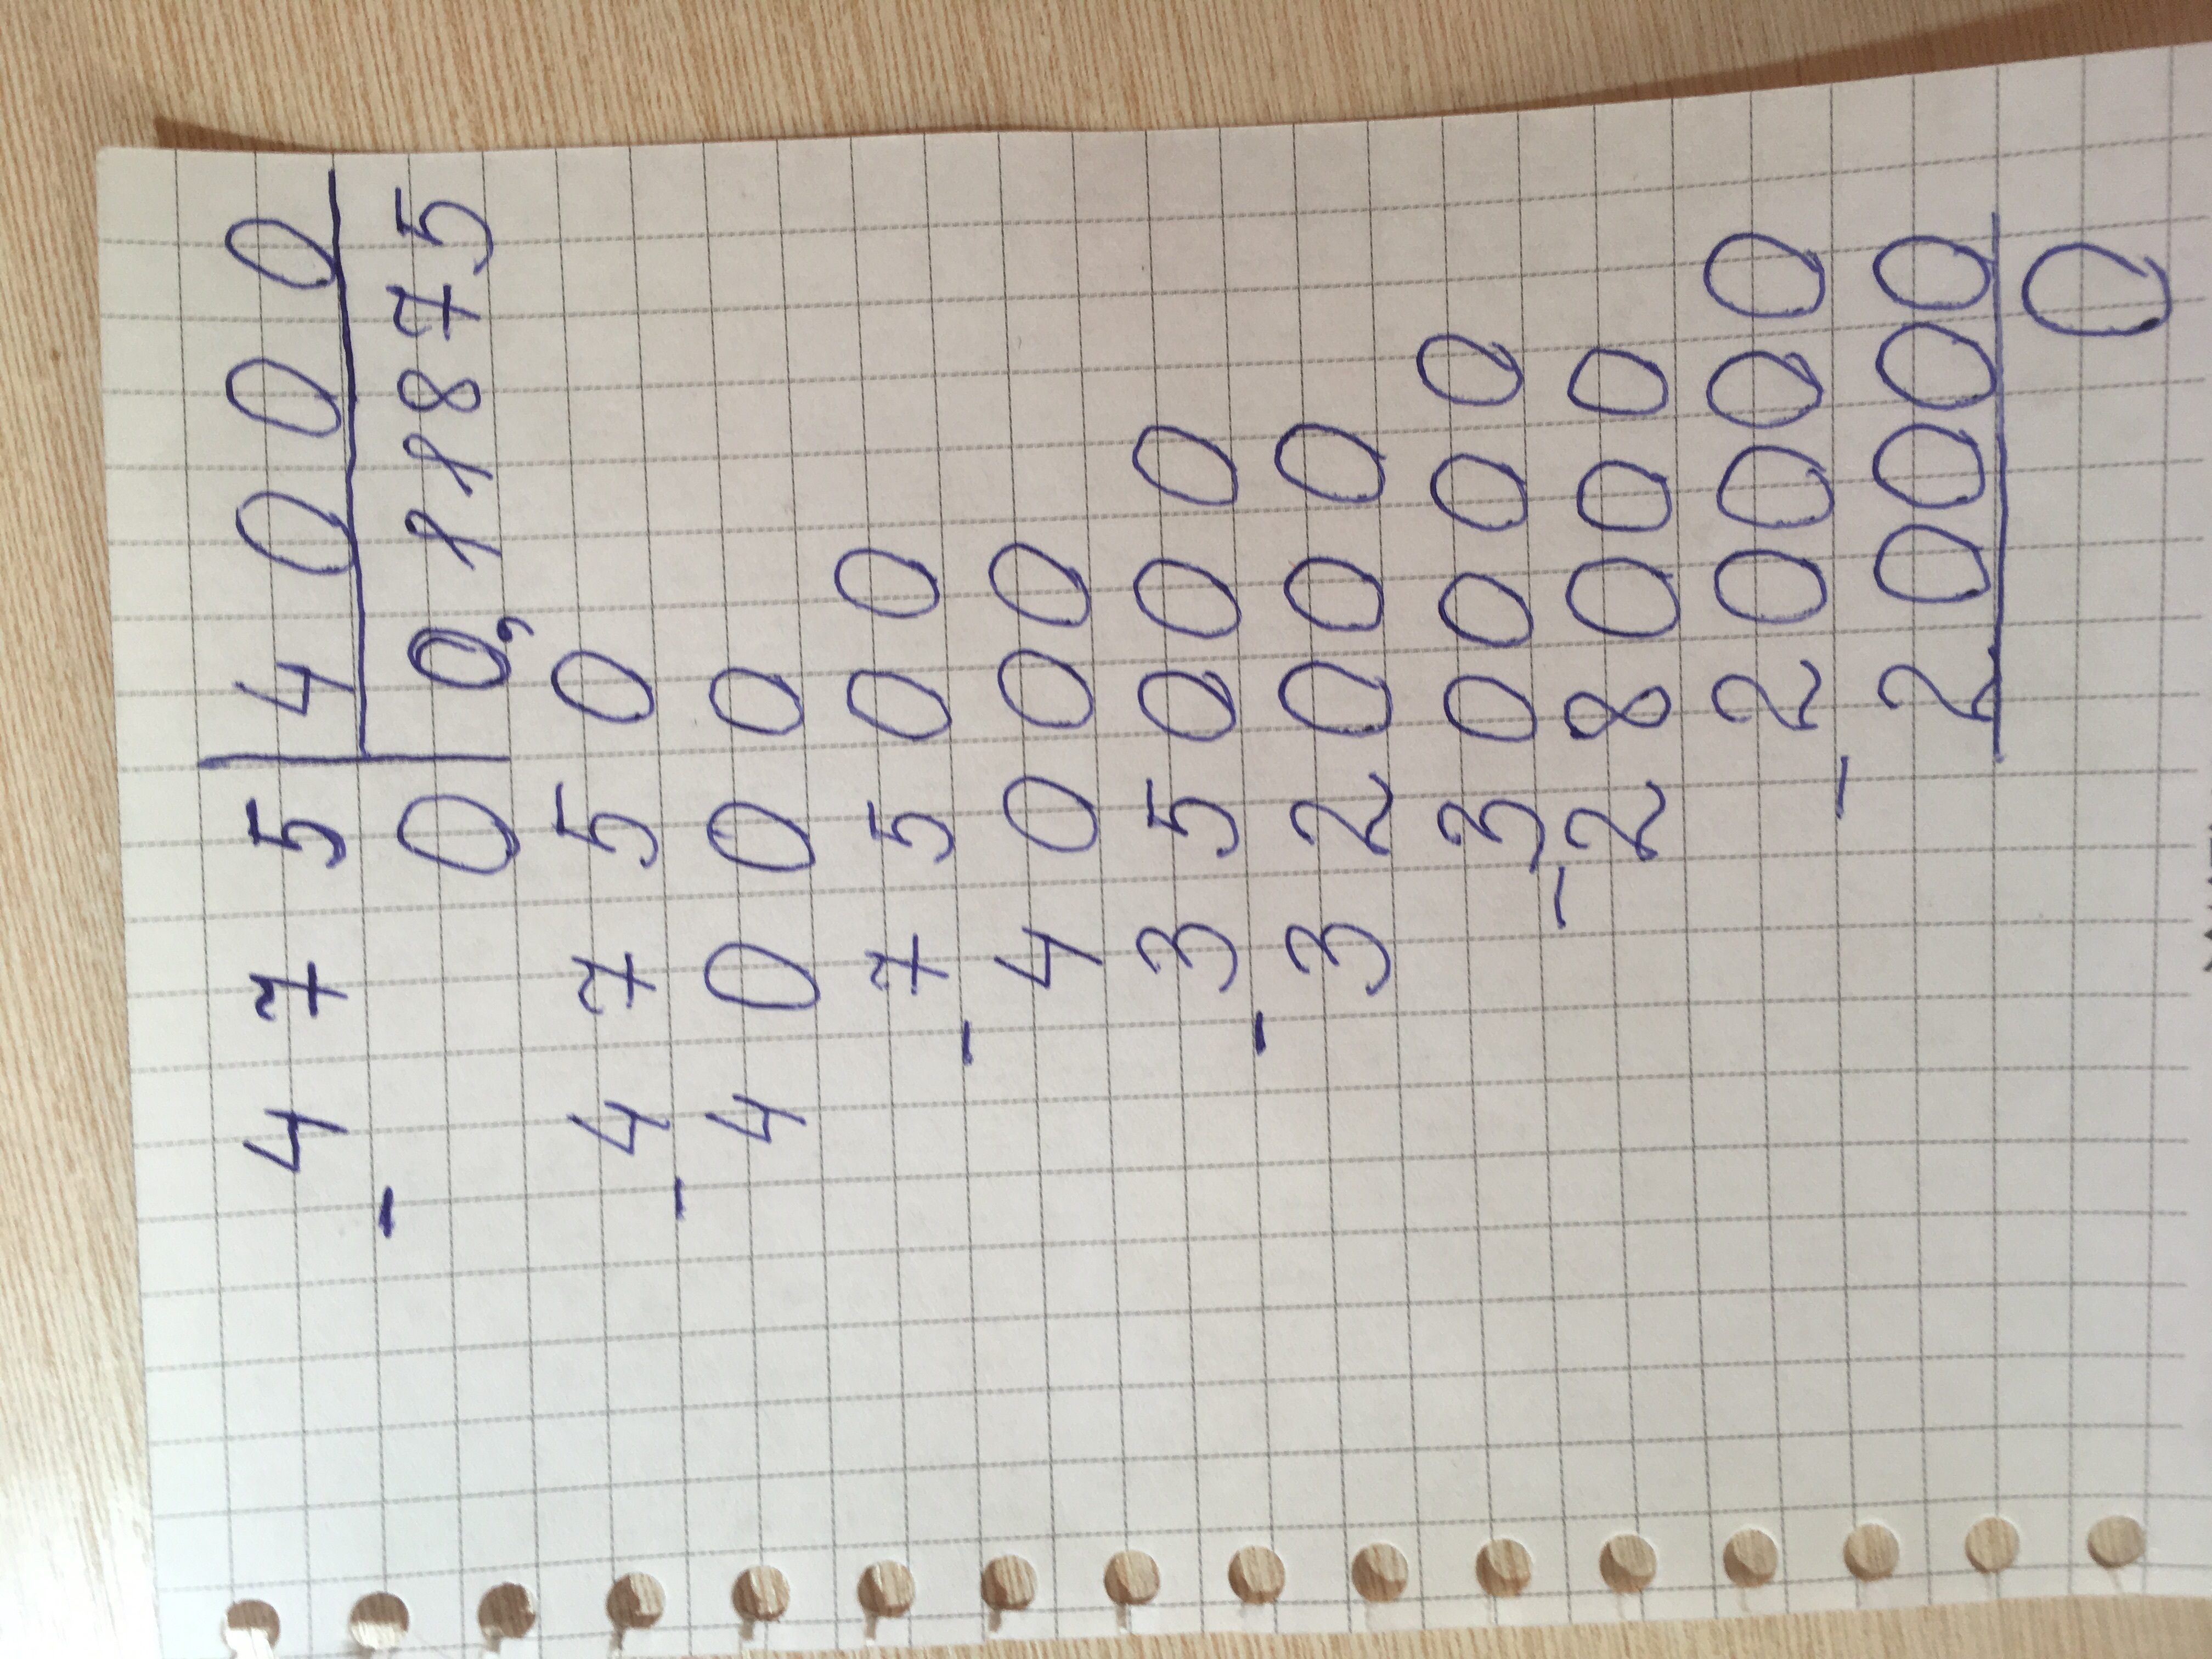 475 | 4000
- 0 | 0,11875
4750
- 4000
7500
- 4000
35000
- 32000
30000
- 28000
20000
- 20000
0